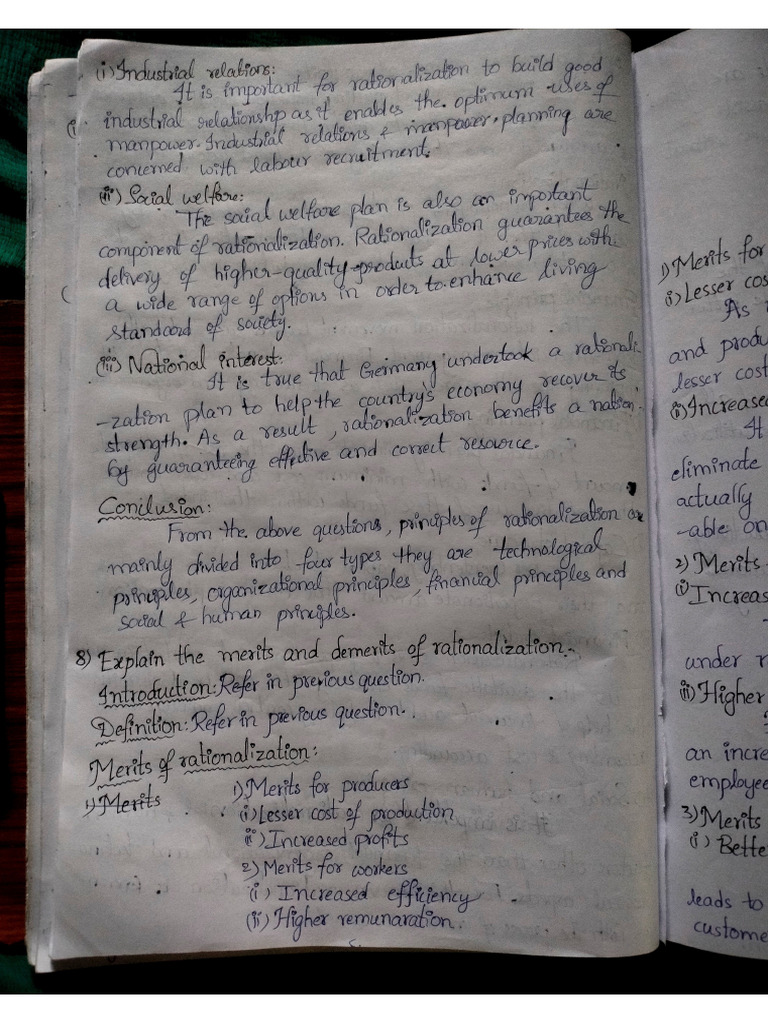 (i) Industrial relations:
It is important for rationalization to build good
industrial relationship as it enables the optimum uses of
manpower. Industrial relations & manpower planning are
concerned with labour recruitment.
(ii) Social welfare:
The social welfare plan is also an important
component of rationalization. Rationalization guarantees the
delivery of higher-quality products at lower prices with
a wide range of options in order to enhance living
standard of society.
(iii) National interest:
It is true that Germany undertook a rationali-
-zation plan to help the country's economy recover its
strength. As a result, rationalization benefits a nation
by guaranteeing effective and correct resource.
Conclusion:
From the above questions, principles of rationalization are
mainly divided into four types they are technological
principles, organizational principles, financial principles and
social & human principles.
8) Explain the merits and demerits of rationalization.
Introduction: Refer in previous question.
Definition: Refer in previous question.
Merits of rationalization:
1) Merits
1) Merits for producers
(i) Lesser cost of production
(ii) Increased profits
2) Merits for workers
(i) Increased efficiency
(ii) Higher remunaration.
1) Merits for
(i) Lesser cos
As
and produ
lesser cost
(ii) Increased
It
eliminate
actually
-able on
2) Merits
(i) Increas
under
(ii) Higher
an incre
employee
3) Merits
(i) Bette
leads to
custome